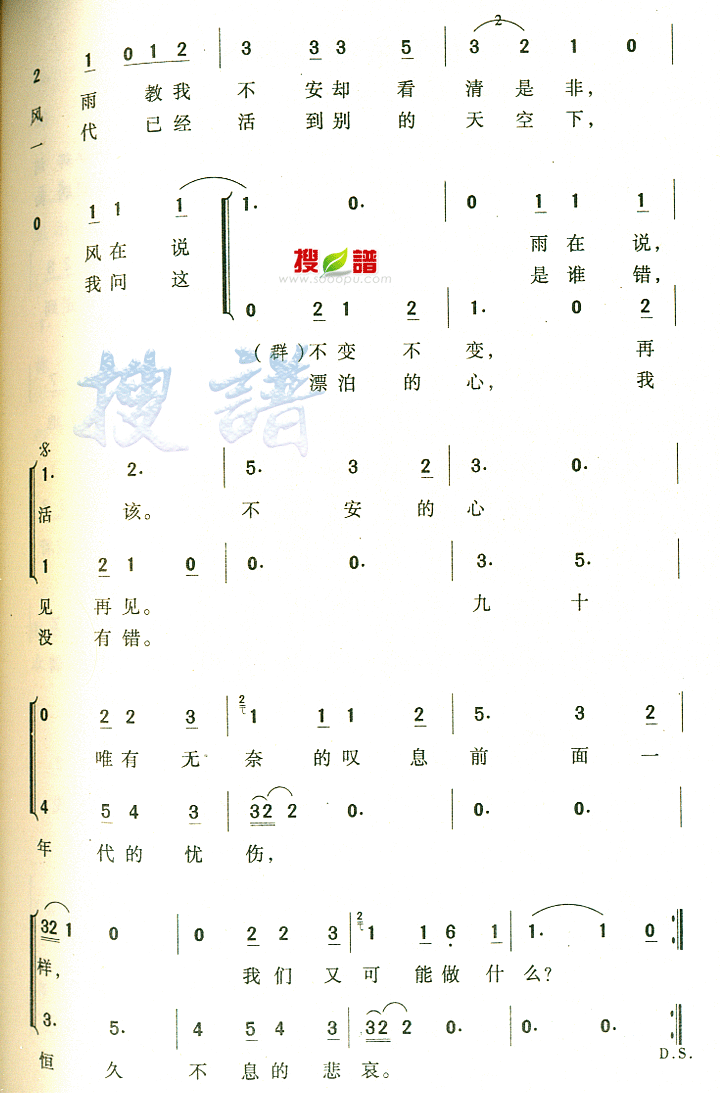 2 1 0 1 2 | 3 3 3 5 | 3 2 1 0 |
风 雨 教我 不 安却 看 清是 非,
一 代 已经 活 到别 的 天空 下,
0 1 1 1 | 1· 0· | 0 1 1 1 |
风在 说 雨在 说,
我问 这 是谁 错,
搜譜
www.sooopu.com
0 2 1 2 | 1· 0 2 |
(群)不变 不 变, 再
漂泊 的 心, 我
搜譜
1· 2· | 5· 3 2 | 3· 0· |
活 该。 不 安 的 心
1 2 1 0 | 0· 0· | 3· 5· |
见 再见。 九 十
没 有错。
0 2 2 3 | 2 1 1 1 2 | 5· 3 2 |
唯有 无 奈 的叹 息 前 面 一
4 5 4 3 | 32 2 0· | 0· 0· |
年 代的 忧 伤,
32 1 0 | 0 2 2 3 | 2 1 1 6 1 | 1· 1 0 :|
样, 我们 又 可 能做 什 么?
3· 5· | 4 5 4 3 | 32 2 0· | 0· 0· :|
恒 久 不 息的 悲 哀。
D.S.